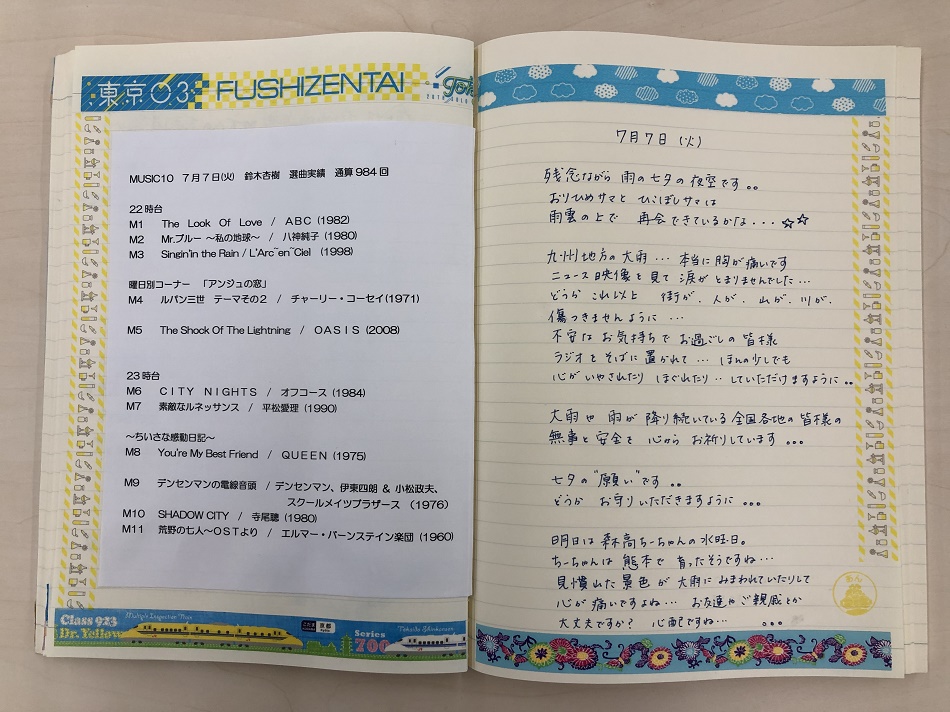 東京03 FUSHIZENTAI
MUSIC10 7月7日(火) 鈴木杏樹 選曲実績 通算984回
22時台
M1 The Look Of Love / ABC (1982)
M2 Mr.ブルー ～私の地球～ / 八神純子 (1980)
M3 Singin'in the Rain / L'Arc~en~Ciel (1998)
曜日別コーナー 「アンジュの窓」
M4 ルパン三世 テーマその2 / チャーリー・コーセイ(1971)
M5 The Shock Of The Lightning / OASIS (2008)
23時台
M6 CITY NIGHTS / オフコース (1984)
M7 素敵なルネッサンス / 平松愛理 (1990)
～ちいさな感動日記～
M8 You're My Best Friend / QUEEN (1975)
M9 デンセンマンの電線音頭 / デンセンマン、伊東四朗 & 小松政夫、
スクールメイツブラザース (1976)
M10 SHADOW CITY / 寺尾聰 (1980)
M11 荒野の七人～OSTより / エルマー・バーンステイン楽団 (1960)
Class 923
Dr. Yellow
Multiple Inspection Train
京都
Series
700
Tokaido Shinkansen
7月7日(火)
残念ながら 雨の七夕の夜空です。。
おりひめサマと ひこぼしサマは
雨雲の上で 再会できているかな・・・☆☆
九州地方の大雨… 本当に胸が痛いです
ニュース映像を見て 涙がとまりませんでした…
どうか これ以上 街が、人が、山が、川が、
傷つきませんように …
不安な お気持ちで お過ごしの 皆様
ラジオを そばに 置かれて … ほんの少しでも
心がいやされたり ほぐれたり‥していただけますように。。
大雨や 雨が 降り続いている 全国各地の 皆様の
無事と 安全を 心から お祈りしています 。。。
七夕の "願い" です 。。
どうか お守りいただきますように 。。。
明日は 森高ちーちゃんの 水曜日。
ちーちゃんは 熊本で 育ったそうですね…
見慣れた 景色が 大雨に みまわれていたりして
心が 痛いですよね… お友達やご親戚とか
大丈夫ですか? 心配ですね… 。。。
あん